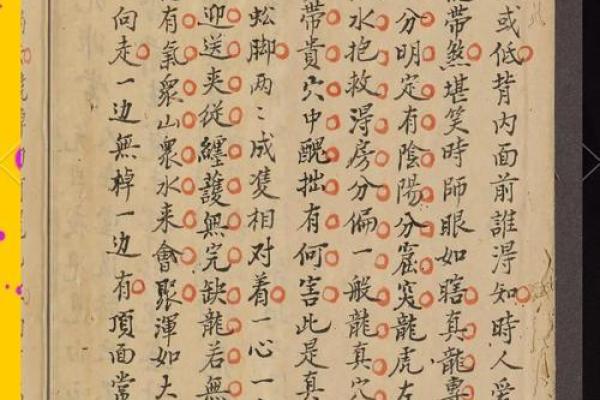 或低背內面前誰淂知時人爱
帶煞堪笑時師眼如瞎真龍專
分明定有陰陽分窟突龍虎左
水抱救淂房分偏一般龍真穴
帶貴穴中醜拙有何害此是真
蚣脚两〻成隻相对着一心一
迎送夹從纏䕶無完缺龍若無
有氣衆山衆水来會聚渾如大
向走一边無棹一边有頂面當